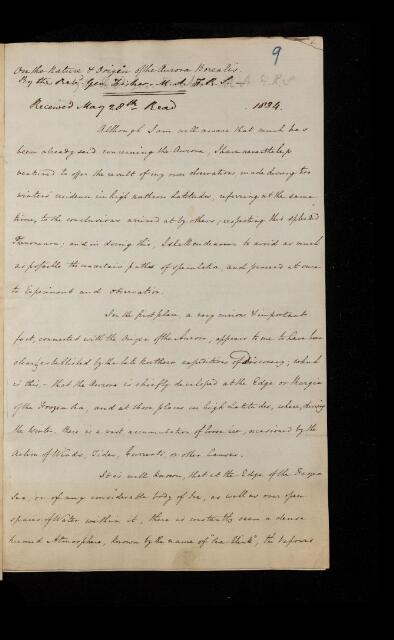 9
On the Nature & Origin of the Aurora Borealis.
By the Revd. Geo. Fisher, M.A. F.R.S.
Received May 28th Read 1834.
Although I am well aware that much has
been already said concerning the Aurora, I have nevertheless
ventured to offer the result of my own observations made during two
winters' residence in high northern Latitudes, referring at the same
time, to the conclusions arrived at by others, respecting this splendid
Phenomenon; and in doing this, I shall endeavour to avoid as much
as possible the uncertain paths of speculation, and proceed at once
to Experiment and Observation.
In the first place, a very curious & important
fact, connected with the Origin of the Aurora, appears to me to have been
clearly established by the late Northern expeditions of Discovery; which
is this,- that the Aurora is chiefly developed at the Edge or Margin
of the Frozen Sea, and at those places in high Latitudes, where, during
the Winter, there is a vast accumulation of loose ice, occasioned by the
Action of Winds, Tides, Currents, or other Causes.
It is well known, that at the Edge of the Frozen
Sea, or of any considerable body of Ice, as well as over open
spaces of Water within it, there is constantly seen a dense
humid Atmosphere, known by the name of "Sea-Blink", the vapours